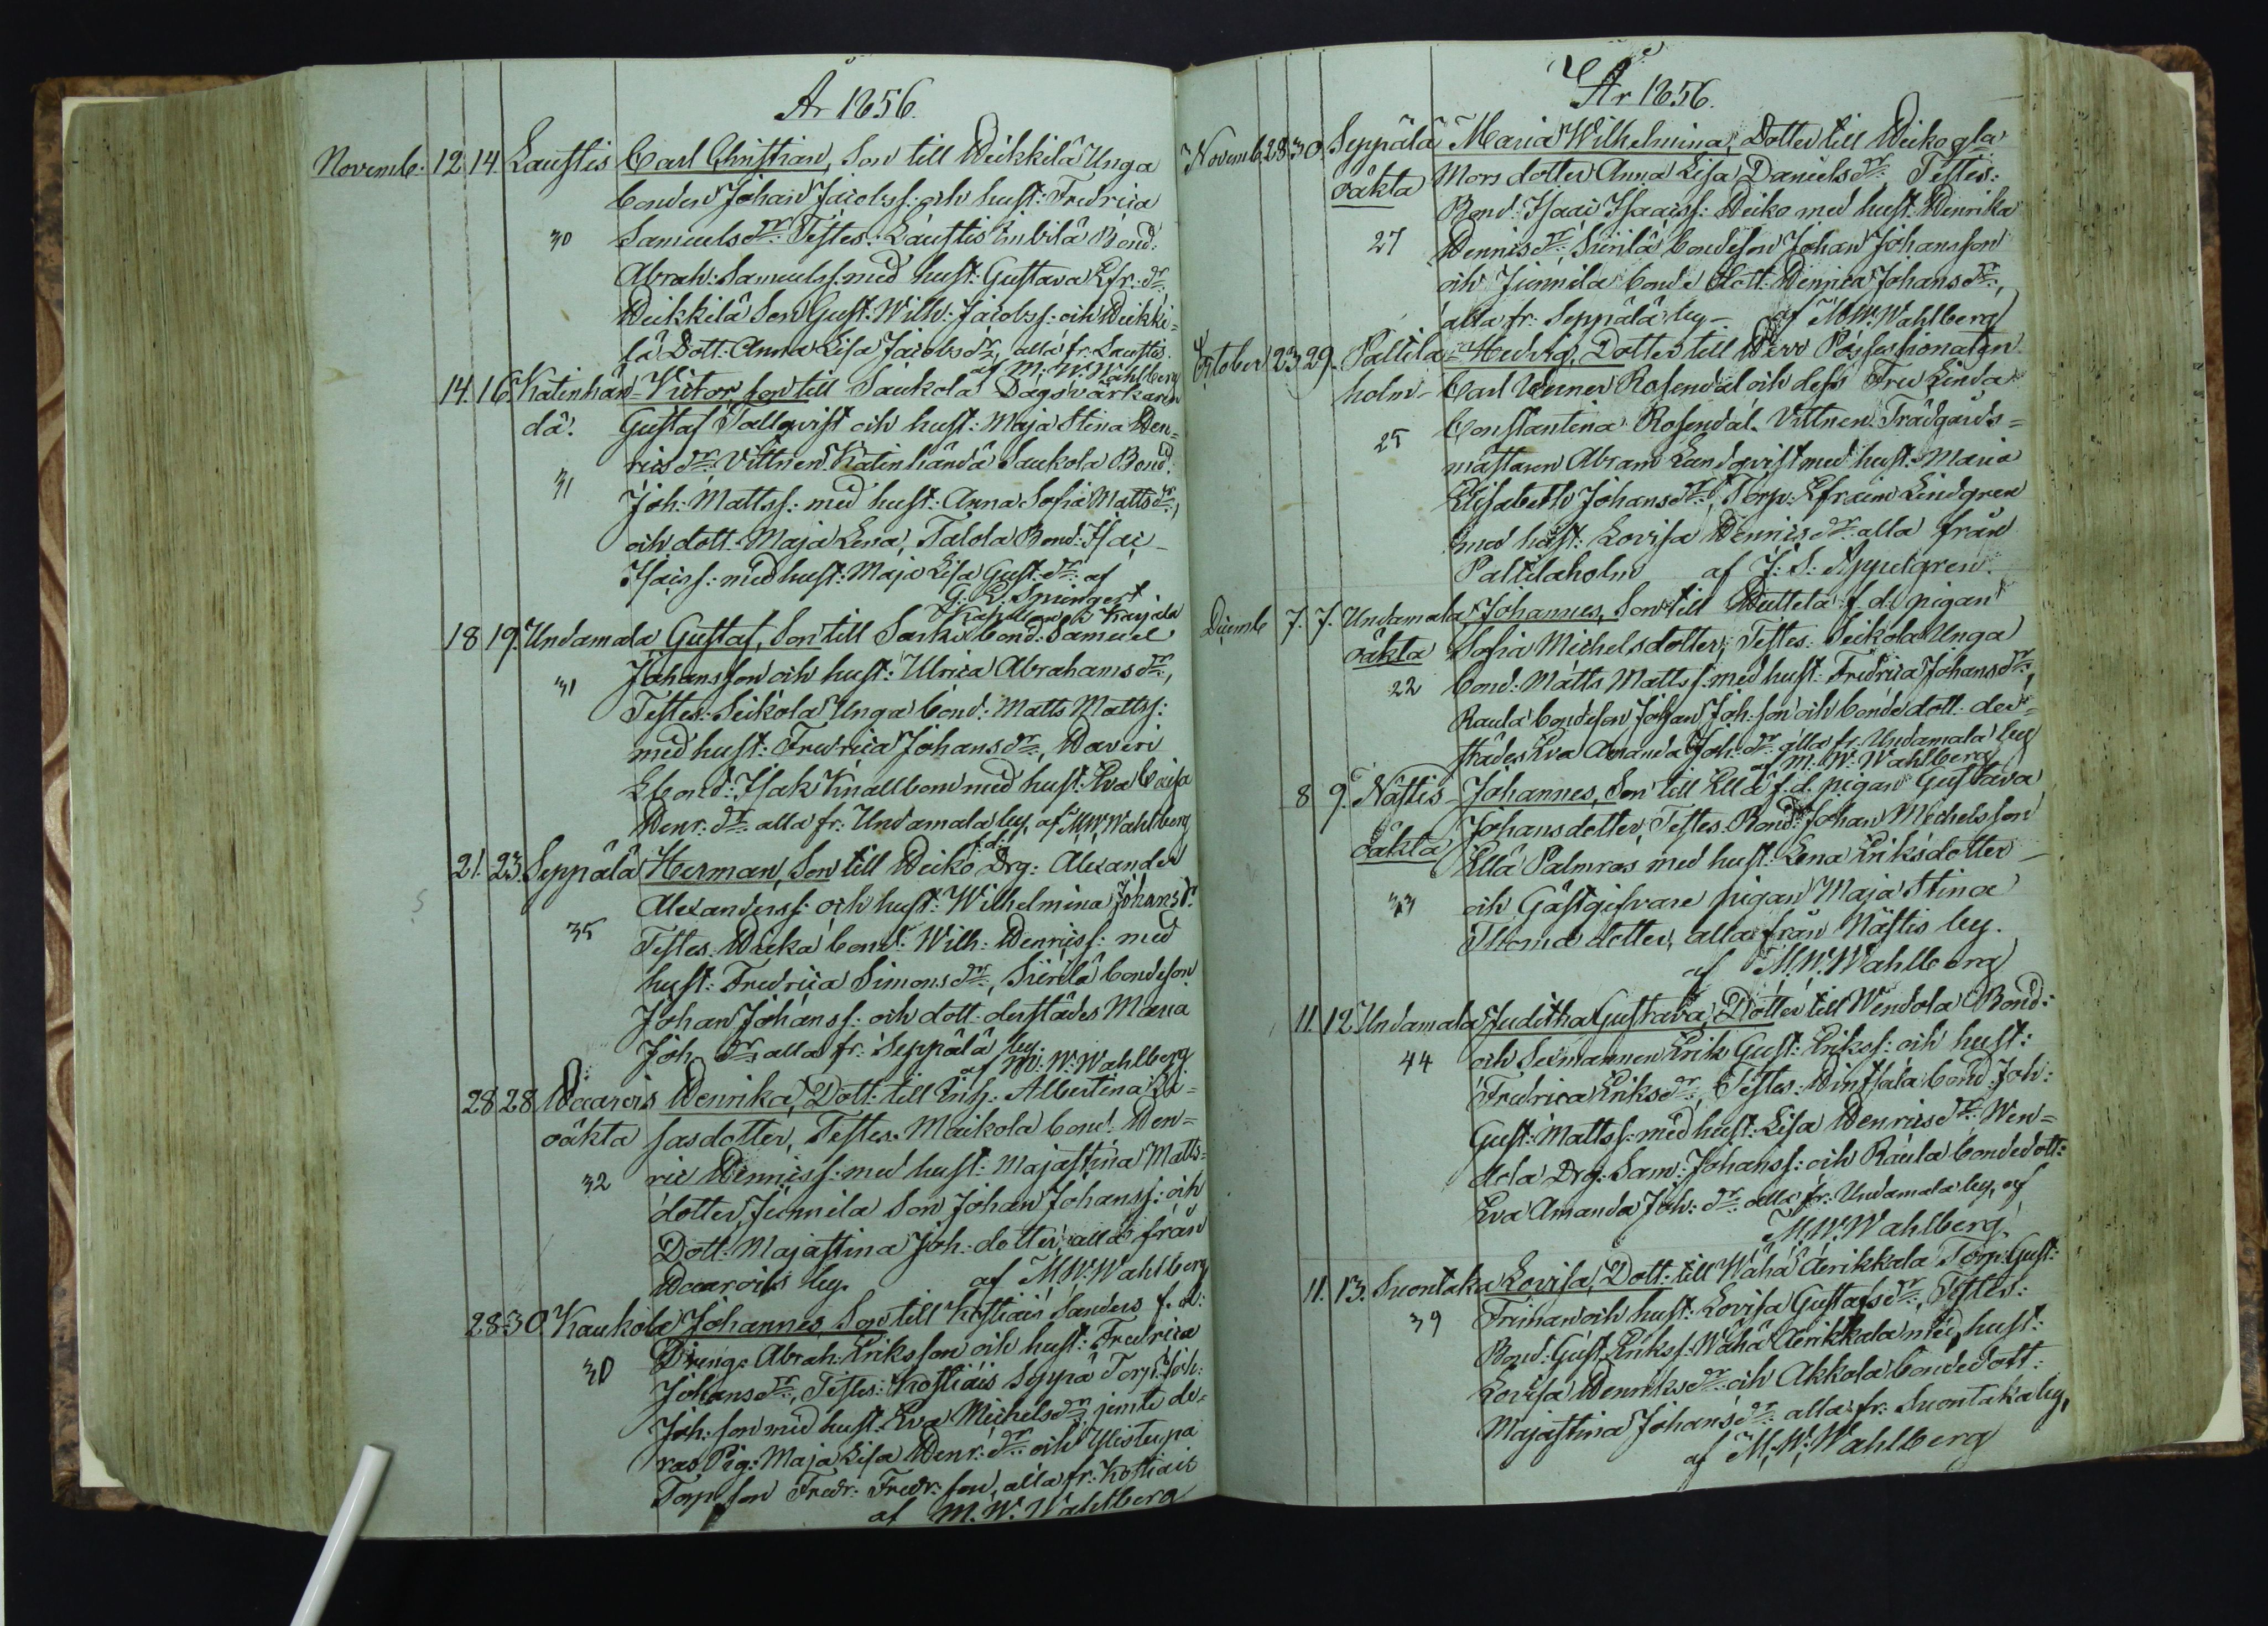 År 1856.
Novemb. 12 14. Laustis Carl Christian, Son till Heikkilä Unga
bonden Johan Jacobss: och hust: Fredrica
30 Samuelsdr: Testes: Laustis Imbilä Bond:
Abrah: Samuelss: med hust: Gustava Efr: dr:
Heikkilä Son Gust: Wilh: Jacobss: och Heikki=
lä Dott: Anna Lisa Jacobsdr, alla fr: Laustis.
af M: W: Wahlberg
14. 16. Katinhän= Victor, son till Saukola Dagsvärkaren
dä. Gustaf Tallqvist och hust: Maja Stina Hen=
ricsdr: Vittnen: Katinhändä Saukola Bond:
31 Joh: Mattss: med hust: Anna Sofia Mattsdr,
och dott: Maja Lena, Talola Bond: Isac
Isacss: med hust: Maja Lisa Gust: dr: af
G: E: Spingert
Kapellan i Karjala
18 19. Undamala Gustaf, Son till Sarki bond: Samuel
Johansson och hust: Ulrica Abrahamsdr,
31 Testes: Seikola Unga bond: Matts Mattss:
med hust: Fredrica Johansdr, Daveri
Ebond: Isak Knallbom med hust: Eva Caisa
Henr: dr: alla fr: Undamala by, af M. W. Wahlberg
21. 23. Seppälä Herman, Son till Heiko f.d. Drg: Alexander
Alexanderss: och hust: Wilhelmina Johansd:
35 Testes: Heiko bond: Wilh: Henricss: med
hust: Fredrica Simonsdr, Sierilä bondeson
Johan Johanss: och dott: derstädes Maria
Joh: dr: alla fr: Seppälä by.
af M: W: Wahlberg
28 28 Haarois Henrika, Dott: till Inh: Albertina
oäkta sasdotter, Testes: Maikola bond: Hen=
32 ric Henricss: med hust: Majastina Matts=
dotter, Junnila Son Johan Johanss: och
Dott: Majastina Joh: dotter, alla från
Haarois by. af M. W. Wahlberg
28 30. Kaukola Johannes, Son till Kostiais Sanders f. d:
Dreng: Abrah: Eriksson och hust: Fredrica
30 Johansdr, Testes: Kostiais Seppä Torp: Joh:
Joh: son med hust: Eva Michelsdr jemte de=
ras Pig: Maja Lisa Henr: dr: och Ylistupa
Torp: son Fredr: Fredr: son, alla fr: Kostiais
af M. W. Wahlberg
År 1856.
Novemb. 28 30. Seppälä Maria Wilhelmina, Dotter till Heiko gla
oäkta Mors dotter Anna Lisa Danielsdr: Testes:
Bond: Isaac Isaacss: Heiko med hust: Henrika
27 Henricsdr, Sierilä bondeson Johan Johansson
och Junnila bonde dott: Henrica Johansdr,
alla fr: Seppälä by. af M. W. Wahlberg
October 23 29. Paltila= Hedvig, Dotter till Herr Possessionaten
holm Carl Werner Rosendal och dess Fru Linda
Constantina Rosendal. Vittnen: Trädgårds=
25 mästaren Abram Landqvist med hust: Maria
Elisabeth Johansdr, Torp: Efraim Lindgren
med hust: Lovisa Henricsdr alla från
Paltilaholm af J: S: Appelgren.
Decemb 7. 7. Undamala Johannes, Son till Hulleta f. d. pigan
oäkta Sofia Michelsdotter, Testes: Seikola Unga
22 bond: Matts Mattss: med hust: Fredrica Johansdr,
Raula bondeson Johan Joh: son och bonde dott: der=
städes Eva Amanda Joh: dr: alla fr: Undamala by
af M. W. Wahlberg
8 9. Nästis Johannes, Son till Ellä f. d. pigan Gustava
oäkta Johansdotter, Testes: Bond: Johan Michelsson
Ellä Palmros med hust: Lena Eriksdotter
33 och Gästgifvare pigan Maja Stina
Thomasdotter, alla från Nästis by.
af M. W. Wahlberg
11. 12 Undamala Juditha Gustava, Dotter till Wendola Bond:
44 och Sexmannen Erik Gust: Erikss: och hust:
Fredrica Eriksdr, Testes: Hinssala bond: Joh:
Gust: Mattss: med hust: Lisa Henricsdr: Wen=
dola Drg: Sam: Johanss: och Raula bondedott:
Eva Amanda Joh: dr: alla fr: Undamala by, af
M. W. Wahlberg
11. 13. Suontaka Lovisa, Dott: till Wähä Äerikkala Torp: Gust:
39 Friman och hust: Lovisa Gustafsdr, Testes:
Bond: Gust: Erikss: Wähä Äerikkala med hust:
Lovisa Henriksdr: och Akkola bondedott:
Majastina Johansdr: alla fr: Suontaka by,
af M. W. Wahlberg